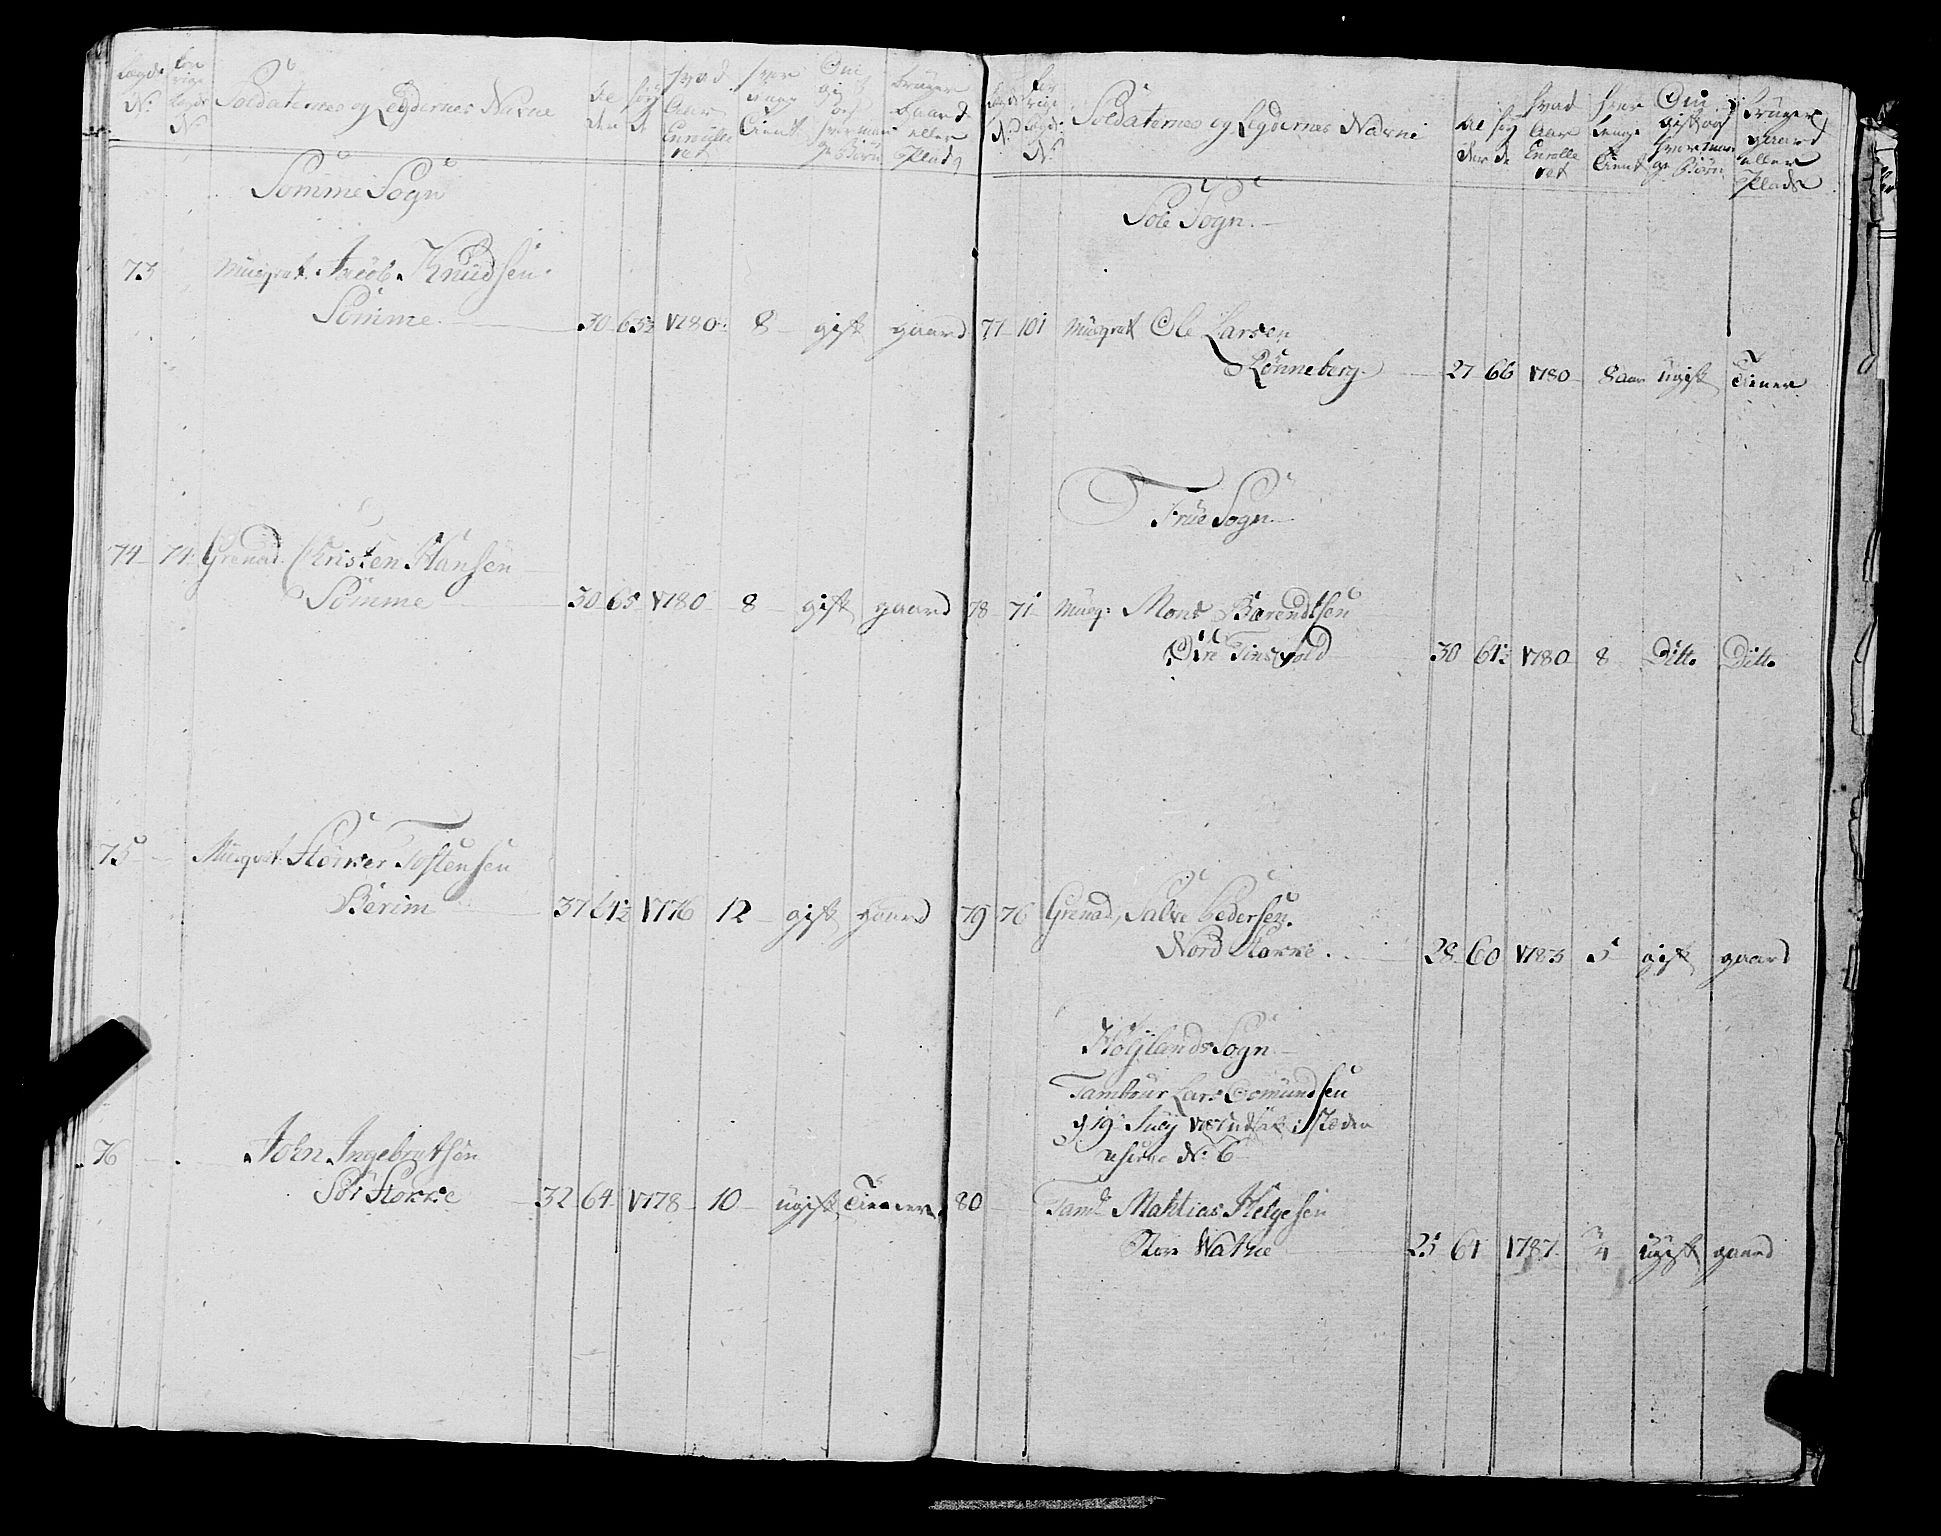 Legds N:
For rige Legds N:
Soldaternes og Legdernes Nafne
Al der
Høy de
Hvad Aar Enrulle ret
Hvor lenge Tient
Om gift og hvor man ge Børn
Bruger Gaard eller Plads
Somme Sogn
73 Musqvet Jacob Knudsen
Somme 30 65½ 1780 8 gift gaard
74 71 Grenad. Christen Hansen
Somme 30 65 1780 8 gift gaard
75 Musqvet Tostensen
37 64½ 1776 12 gift gaard
76 John Ingebretsen
Sør Stokke 32 64 1778 10 ugift Tiener
Legds N:
For rige Legds N:
Soldaternes og Legdernes Nafne
Al der
Høy de
Hvad Aar Enrolle ret
Hvor lenge Tient
Om gift og hvor man ge Børn
Bruger gaard eller Plads
Sole Sogn
77 101 Musqvet Ole Larsen
Rønneberg 27 66 1780 8 aar ugift Tiener
Frue Sogn
78 71 Musq: Mons Barendtsen
30 61½ 1780 8 Ditto Ditto
79 76 Grenad. Salve Pedersen
Nord Stokke 28 60 1783 5 gift gaard
Høylands Sogn
Tambour Lars Osmundsen
d 19 July 1787 udsat i Steden
N: 6
80 Tamb. Mathias Helgesen
Store Watne 25 64 1787 4 ugift gaard